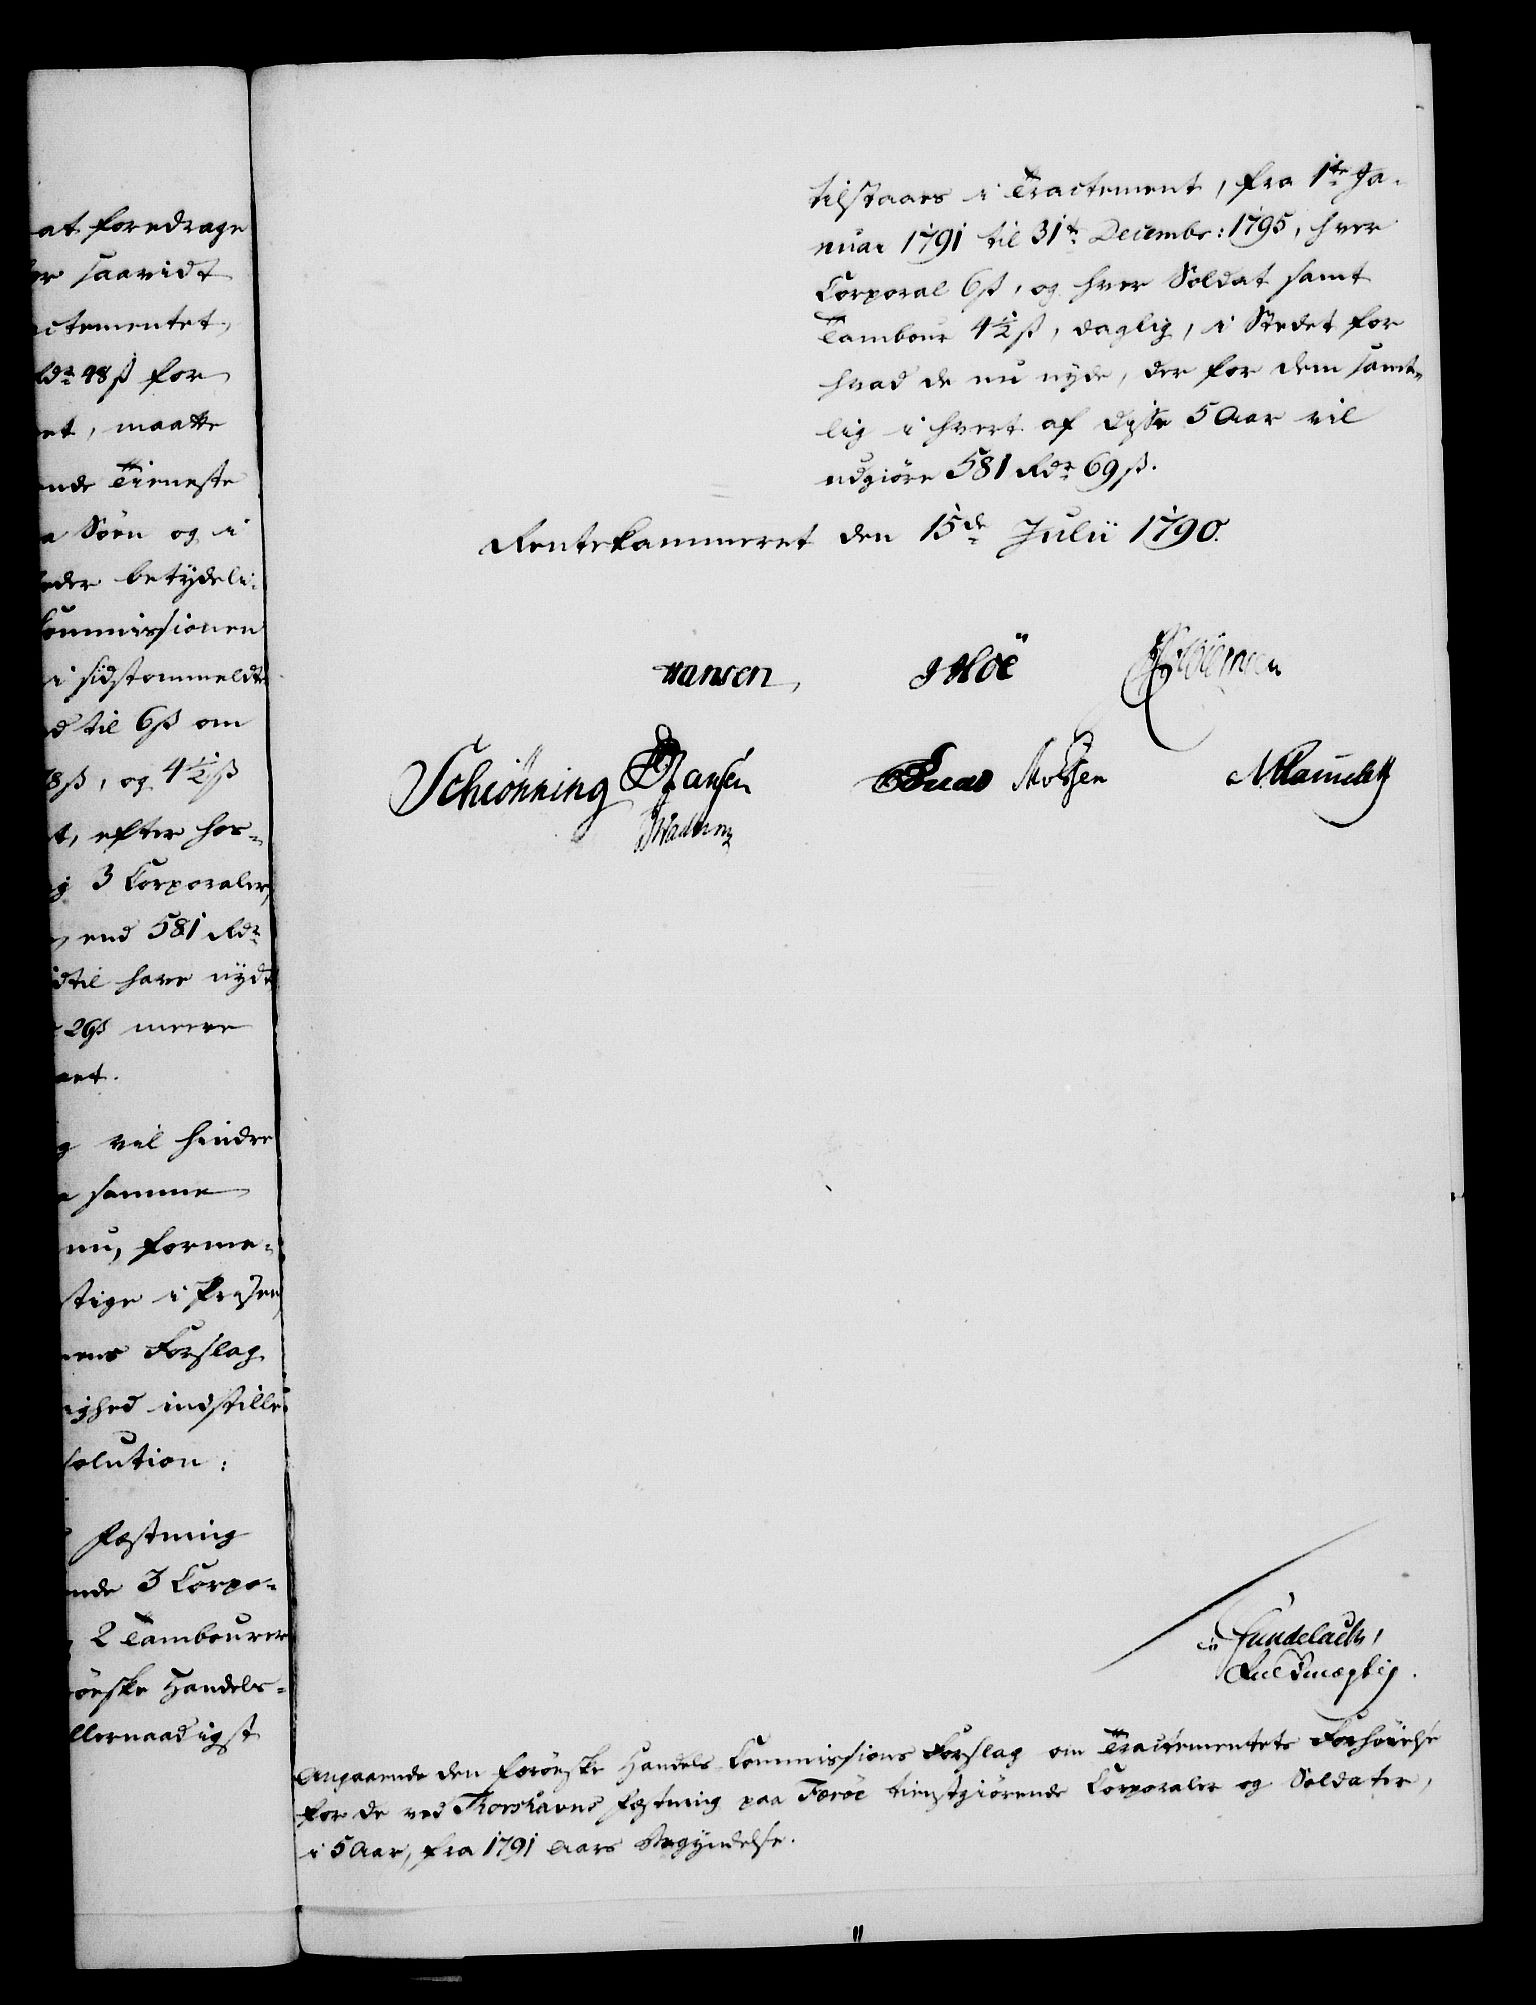 at foredrage
saavidt
actementet,
48 ß for
et, maatte
ende Tieneste
Söen og i
eder betydeli-
Commissionen
i sidstommeldte
til 6 ß om
8 ß, og 4½ ß
t, efter hos-
3 Corporaler,
end 581 Rdr
dtil have nydt
26 ß meere
aaret.
vil hindre
samme
nu, forme-
stige i Prisen
nens Forslag
ighed indstille
solution:
Fæstning
ende 3 Corpo-
2 Tambourer
röeske Handels-
llernaadigst
tilstaaes i Tractement, fra 1te Ja-
nuar 1791 til 31te Decembr: 1795, hver
Corporal 6 ß, og hver Soldat samt
Tambour 4½ ß, daglig, i Stedet for
hvad de nu nyde, der for dem samt-
lig i hvert af disse 5 Aar vil
udgiöre 581 Rdr 69 ß.
Rentekammeret den 15de Julii 1790.
Hansen,
Schiönning Hansen
Gundelach,
Fuldmægtig.
Angaaende den Færöeske Handels Commissions Forslag om Tractementets Forhöielse
for de ved Thorshavns Fæstning paa Færöe tienstgiörende Corporaler og Soldater,
i 5 Aar, fra 1791 Aars Begyndelse.